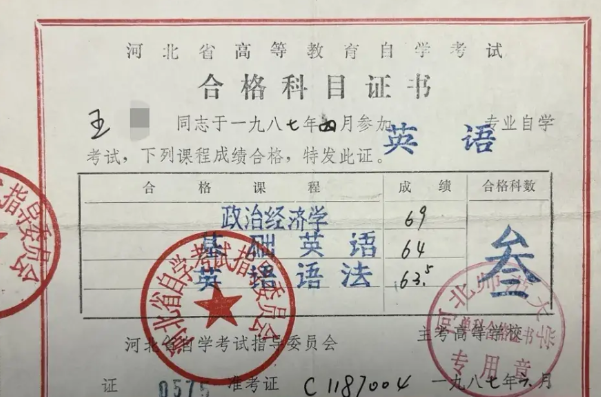 河北省高等教育自学考试
合格科目证书
王 同志于一九八七年四月参加 英语 专业自学
考试，下列课程成绩合格，特发此证。
合格课程 成绩 合格科数
政治经济学 69
基础英语 64 叁
英语语法 63.5
河北省自学考试指导委员会 主考高等学校
证 0575 准考证 C1187004 一九八七年六月
河北省自学考试指导委员会
指导委员会
河北师范大学
单科合格证书
专用章